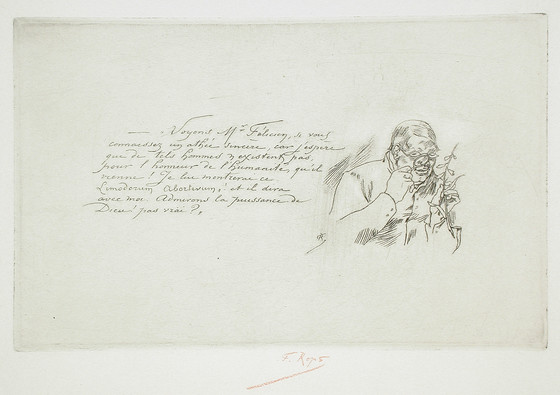 — "Voyons Mr Félicien, si vous
connaissez un athée sincère, car j'espère
que de tels hommes n'existent pas,
pour l'honneur de l'humanité, qu'il
vienne! Je lui montrerai ce
Limodorum Abortivum, et il dira
avec moi Admirons la puissance de
Dieu! pas vrai?"
F. Rops